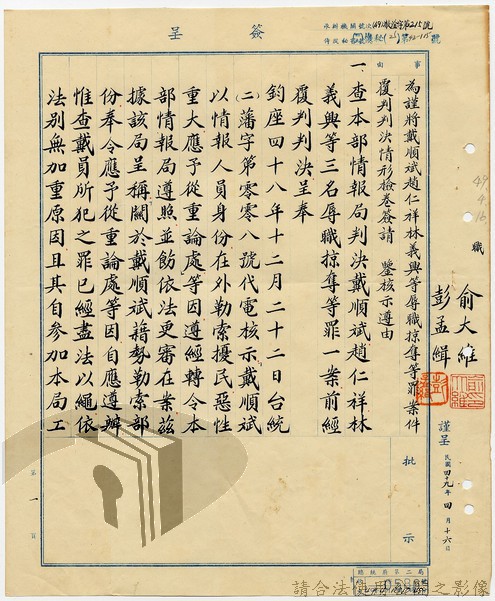 簽呈
事由
為謹將戴順斌趙仁祥林義興等辱職掠奪等罪案件
覆判判決情形檢卷簽請　鑒核示遵由
職
俞大維
彭孟緝
謹呈
民國四十九年四月十六日
49.4.16
一、查本部情報局判決戴順斌趙仁祥林
義興等三名辱職掠奪等罪一案前經
覆判判決呈奉
鈞座四十八年十二月二十二日台統
(二)藩字第零零八號代電核示戴順斌
以情報人員身份在外勒索擾民惡性
重大應予從重論處等因遵經轉令本
部情報局遵照並飭依法更審在案茲
據該局呈稱關於戴順斌藉勢勒索部
份奉令應予從重論處等因自應遵辦
惟查戴員所犯之罪已經盡法以繩依
法別無加重原因且其自參加本局工
批示
第一頁
總統府第二局
請合法使用之影像